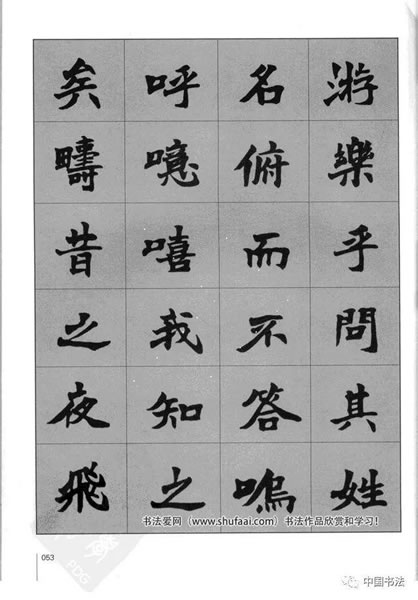 游樂乎問其姓
名俯而不答嗚
呼噫嘻我知之
矣疇昔之夜飛
书法爱网（www.shufaai.com）书法作品欣赏和学习！
053
PDG
中国书法